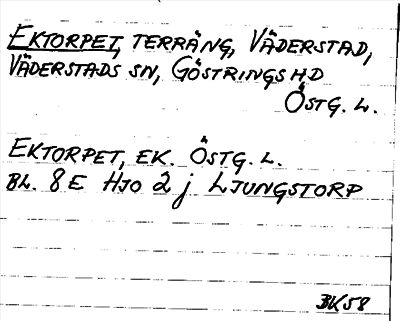 EKTORPET, TERRÄNG, VÄDERSTAD,
VÄDERSTADS SN, GÖSTRINGS HD
ÖSTG. L.
EKTORPET, EK. ÖSTG. L.
BL. 8 E HJO 2 j LJUNGSTORP
BK58